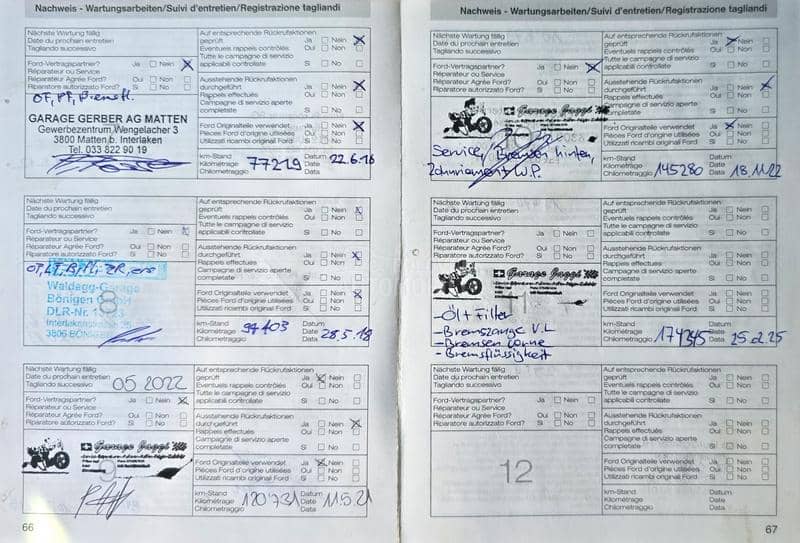 Nachweis - Wartungsarbeiten/Suivi d'entretien/Registrazione tagliandi
Nächste Wartung fällig
Date du prochain entretien
Tagliando successivo
Ford-Vertragspartner? Ja Nein
Réparateur ou Service
Réparateur Agrée Ford? Oui Non
Riparatore autorizzato Ford? Si No
GARAGE GERBER AG MATTEN
Gewerbezentrum Wengelacher 3
3800 Matten b. Interlaken
Tel. 033 822 90 19
Auf entsprechende Rückrufaktionen
geprüft Ja Nein
Eventuels rappels contrôlés Oui Non
Tutte le campagne di servizio
applicabili controllate Si No
Ausstehende Rückrufaktionen
durchgeführt Ja Nein
Rappels effectués Oui Non
Campagne di servizio aperte
completate Si No
Ford Originalteile verwendet Ja Nein
Pièces Ford d'origine utilisées Oui Non
Utilizzati ricambi originali Ford Si No
km-Stand
Kilométrage 77219
Chilometraggio
Datum
Date 22.6.16
Data
Nächste Wartung fällig
Date du prochain entretien
Tagliando successivo
Ford-Vertragspartner? Ja Nein
Réparateur ou Service
Réparateur Agrée Ford? Oui Non
Riparatore autorizzato Ford? Si No
Waldegg-Garage
Bönigen
DLR-Nr.
8
Auf entsprechende Rückrufaktionen
geprüft Ja Nein
Eventuels rappels contrôlés Oui Non
Tutte le campagne di servizio
applicabili controllate Si No
Ausstehende Rückrufaktionen
durchgeführt Ja Nein
Rappels effectués Oui Non
Campagne di servizio aperte
completate Si No
Ford Originalteile verwendet Ja Nein
Pièces Ford d'origine utilisées Oui Non
Utilizzati ricambi originali Ford Si No
km-Stand
Kilométrage
Chilometraggio
Datum
Date 28.5.18
Data
Nächste Wartung fällig
Date du prochain entretien 05 2022
Tagliando successivo
Ford-Vertragspartner? Ja Nein
Réparateur ou Service
Réparateur Agrée Ford? Oui Non
Riparatore autorizzato Ford? Si No
Garage Gaggi
9
Auf entsprechende Rückrufaktionen
geprüft Ja Nein
Eventuels rappels contrôlés Oui Non
Tutte le campagne di servizio
applicabili controllate Si No
Ausstehende Rückrufaktionen
durchgeführt Ja Nein
Rappels effectués Oui Non
Campagne di servizio aperte
completate Si No
Ford Originalteile verwendet Ja Nein
Pièces Ford d'origine utilisées Oui Non
Utilizzati ricambi originali Ford Si No
km-Stand
Kilométrage 120731
Chilometraggio
Datum
Date 11.5.21
Data
66
Nachweis - Wartungsarbeiten/Suivi d'entretien/Registrazione tagliandi
Nächste Wartung fällig
Date du prochain entretien
Tagliando successivo
Ford-Vertragspartner? Ja Nein
Réparateur ou Service
Réparateur Agrée Ford? Oui Non
Riparatore autorizzato Ford? Si No
Garage Gaggi
Service, Bremsen hinten,
Zahnriemen+W.P.
Auf entsprechende Rückrufaktionen
geprüft Ja Nein
Eventuels rappels contrôlés Oui Non
Tutte le campagne di servizio
applicabili controllate Si No
Ausstehende Rückrufaktionen
durchgeführt Ja Nein
Rappels effectués Oui Non
Campagne di servizio aperte
completate Si No
Ford Originalteile verwendet Ja Nein
Pièces Ford d'origine utilisées Oui Non
Utilizzati ricambi originali Ford Si No
km-Stand
Kilométrage 145280
Chilometraggio
Datum
Date 18.11.22
Data
Nächste Wartung fällig
Date du prochain entretien
Tagliando successivo
Ford-Vertragspartner? Ja Nein
Réparateur ou Service
Réparateur Agrée Ford? Oui Non
Riparatore autorizzato Ford? Si No
Garage Gaggi
-Öl+Filter
-Bremszange V.L
-Bremsen vorne
-Bremsflüssigkeit
Auf entsprechende Rückrufaktionen
geprüft Ja Nein
Eventuels rappels contrôlés Oui Non
Tutte le campagne di servizio
applicabili controllate Si No
Ausstehende Rückrufaktionen
durchgeführt Ja Nein
Rappels effectués Oui Non
Campagne di servizio aperte
completate Si No
Ford Originalteile verwendet Ja Nein
Pièces Ford d'origine utilisées Oui Non
Utilizzati ricambi originali Ford Si No
km-Stand
Kilométrage 174345
Chilometraggio
Datum
Date 25.2.25
Data
Nächste Wartung fällig
Date du prochain entretien
Tagliando successivo
Ford-Vertragspartner? Ja Nein
Réparateur ou Service
Réparateur Agrée Ford? Oui Non
Riparatore autorizzato Ford? Si No
12
Auf entsprechende Rückrufaktionen
geprüft Ja Nein
Eventuels rappels contrôlés Oui Non
Tutte le campagne di servizio
applicabili controllate Si No
Ausstehende Rückrufaktionen
durchgeführt Ja Nein
Rappels effectués Oui Non
Campagne di servizio aperte
completate Si No
Ford Originalteile verwendet Ja Nein
Pièces Ford d'origine utilisées Oui Non
Utilizzati ricambi originali Ford Si No
km-Stand
Kilométrage
Chilometraggio
Datum
Date
Data
67